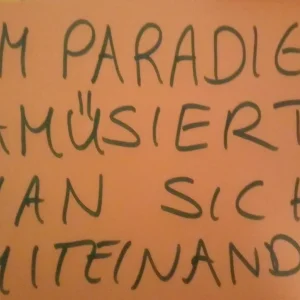 IM PARADIE
AMÜSIERT
MAN SICH
MITEINAND